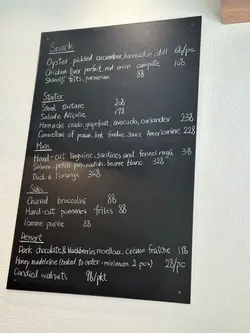 Snack
Oyster, pickled cucumber, horseradish, dill 68/pc
Chicken liver parfait, red onion compote 108
Shoestring fries, parmesan 88
Starter
Steak tartare 208
Salade Niçoise 198
Hamachi crudo, grapefruit, avocado, coriander 238
Cannelloni of prawn, leek fondue, sauce Americaine 228
Main
Hand-cut linguine, sardines and fennel ragù
Salmon, petits pois, radish, beurre blanc 328
Duck à l'orange 348
Sides
Charred broccolini 88
Hand-cut pommes frites 88
Pomme purée 88
Dessert
Dark chocolate & blackberries moelleux, crème fraîche 118
Honey madeleine (baked to order - minimum 2 pcs) 28/pc
Candied walnuts 98/pkt